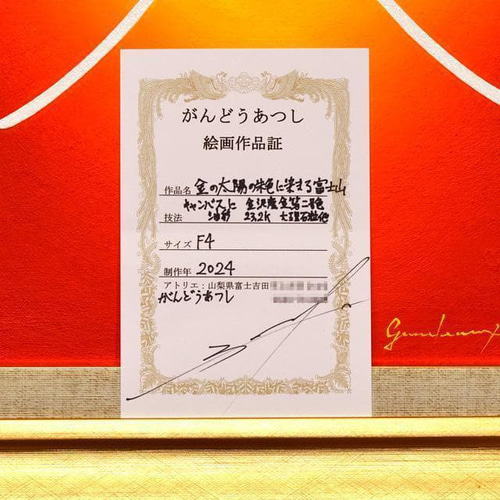 がんどうあつし
絵画作品証
作品名 金の太陽の朱色に染まる富士山
キャンバスに 金沢産金箔二号色
技法 油彩 23.2K 大理石粉他
サイズ F4
制作年 2024
アトリエ：山梨県富士吉田
がんどうあつし